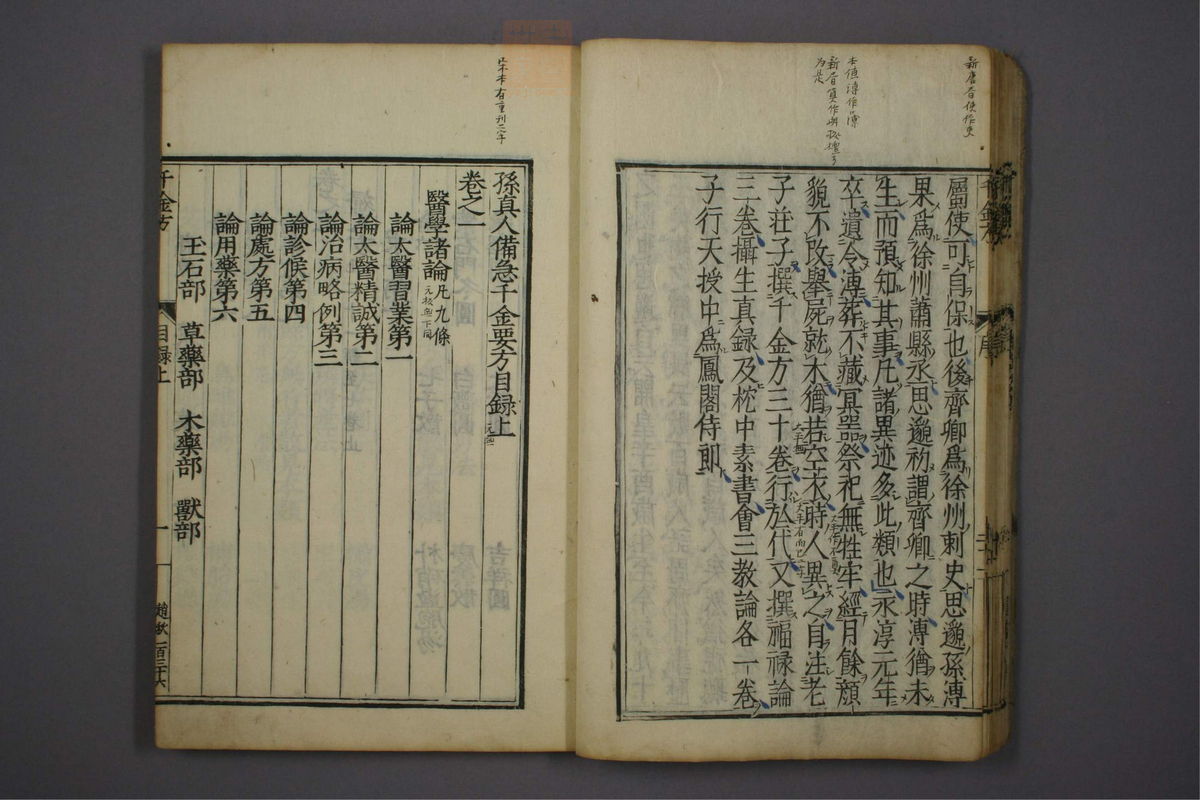 新唐書使作吏
本傳溥作薄
為是
屬使可自保也後齊卿爲徐州刺史思邈孫溥
果爲徐州蕭縣丞思邈初謂齊卿之時溥猶未
生而預知其事凡諸異迹多此類也永淳元年
卒遺令薄葬不藏冥器祭祀無牲牢經月餘顔
貌不改舉屍就木猶若空衣時人異之自注老
子莊子撰千金方三十卷行於代又撰福禄論
三卷攝生真録及枕中素書會三教論各一卷
子行天授中爲鳳閣侍郎
序
孫真人備急千金要方目録上
卷之一
醫學諸論凡九條
論太醫習業第一
論太醫精誠第二
論治病略例第三
論診候第四
論處方第五
論用藥第六
玉石部 草藥部 木藥部 獸部
千金方
目録上
一